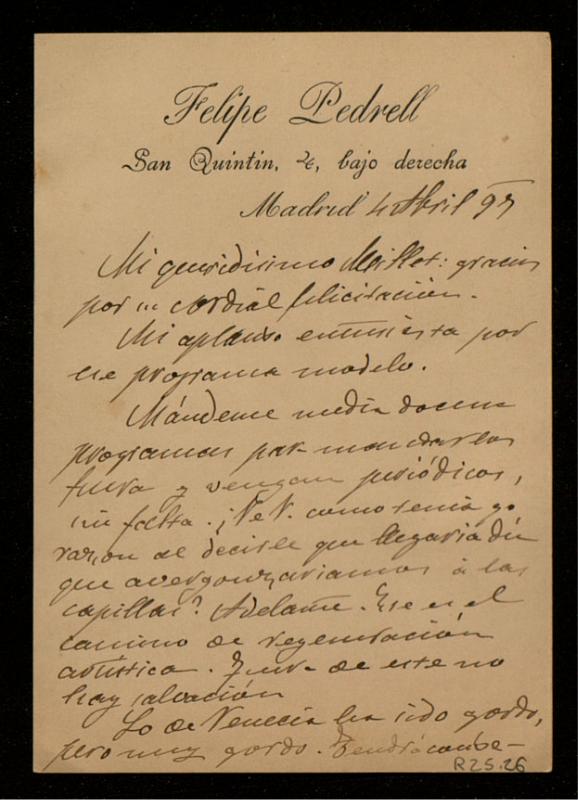 Felipe Pedrell
San Quintin, 2, bajo derecha
Madrid 4 Abril 97
Mi queridisimo Millet: gracias
por su cordial felicitación.
Mi aplauso entusiasta por
ese programa modelo.
Mándeme media docena
programas para mandarlos
fuera y vengan periódicos,
sin falta. ¿Ve V. como tenia yo
razon al decirle que llegaria dia
que avergonzariamos á las
capillas? Adelante. Ese es el
camino de regeneración
artística. Fuera de este no
hay salvación
Lo de Venecia ha sido gordo,
pero muy gordo. Tendrá conse-
R25.26